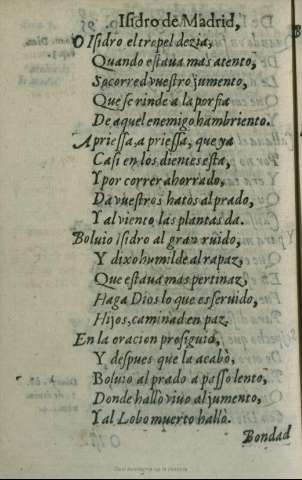 Isidro de Madrid,
O Isidro el tropel dezia,
Quando estaua mas atento,
Socorred vuestro jumento,
Que se rinde a la porfia
De aquel enemigo hambriento.
Apriessa, a priessa, que ya
Casi en los dientes esta,
Y por correr ahorrado,
Da vuestros hatos al prado,
Y al viento las plantas da.
Boluio isidro al gran ruido,
Y dixo humilde al rapaz,
Que estaua mas pertinaz,
Haga Dios lo que es seruido,
Hijos, caminad en paz.
En la oracion prosiguio,
Y despues que la acabò,
Boluio al prado a passo lento,
Donde hallò viuo al jumento,
Y al Lobo muerto hallò.
Bondad